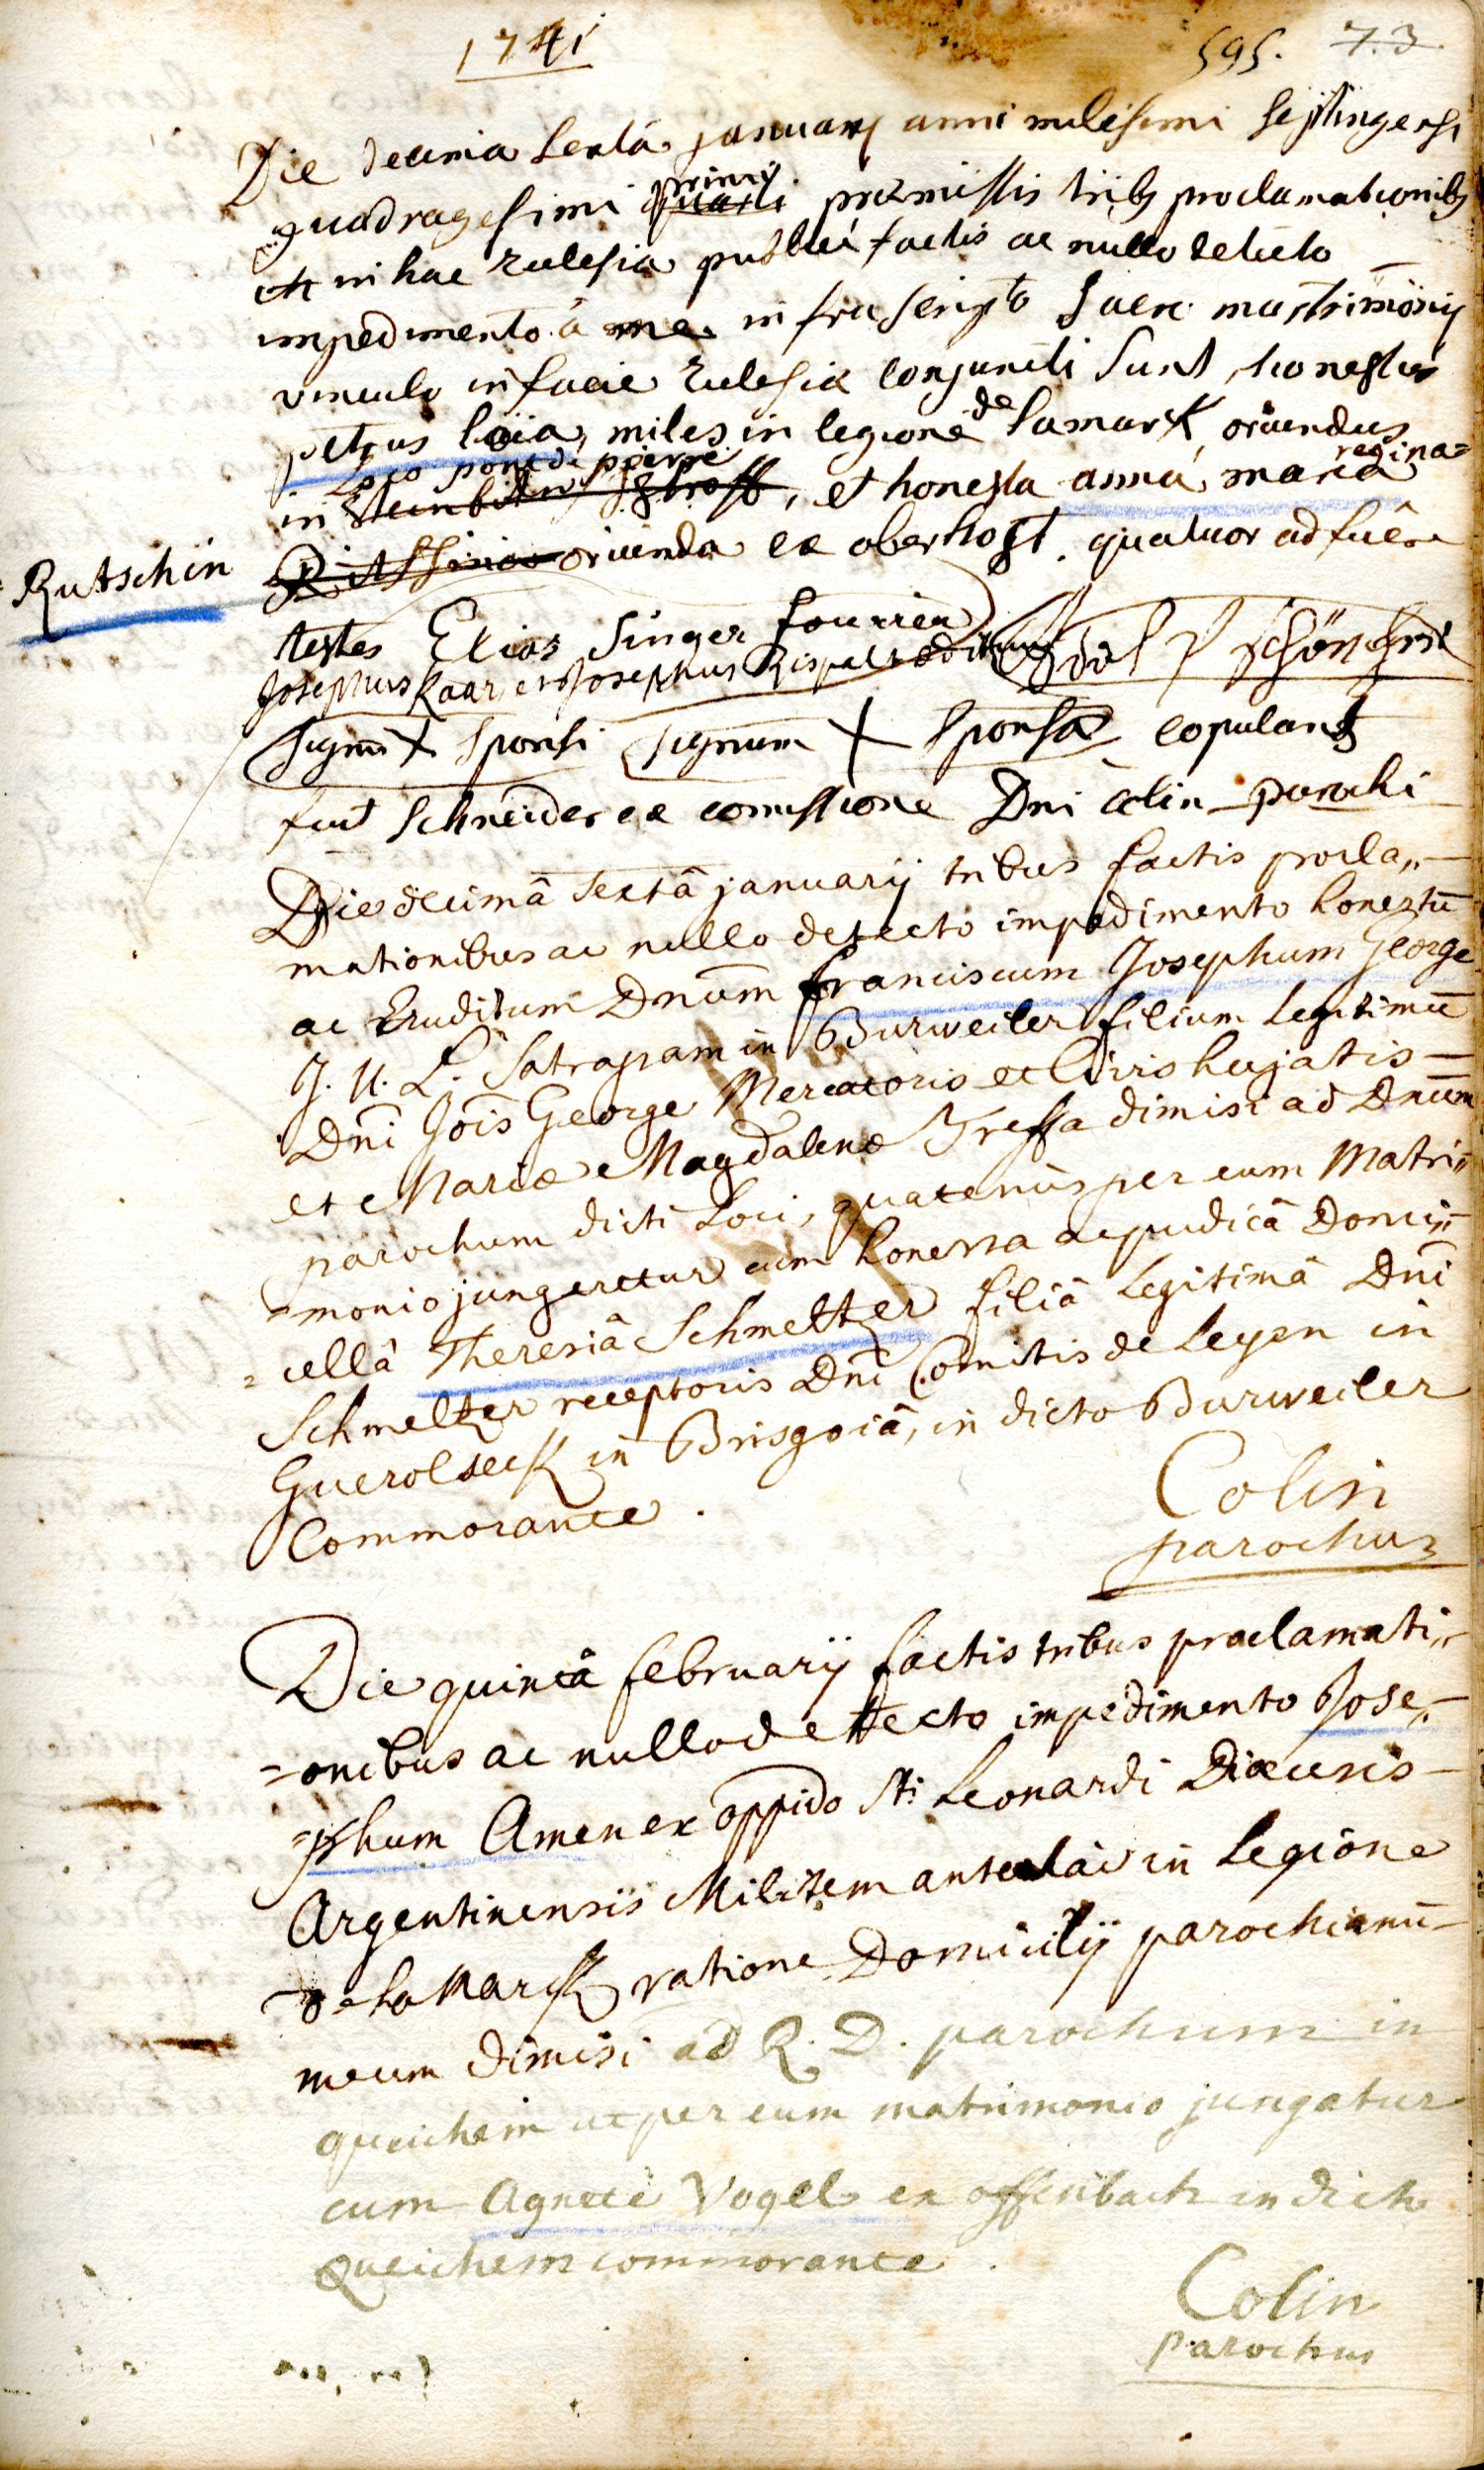 1741
595. 73
Die decima sexta january anni milesimi septingensi
quadragesimi quarti primi præmissis trib9 proclamationib9
in hac Ecclesia publice factis ac nullo detecto
impedimento â me infra scripto sacri matrimonij
vinculo in facie Ecclesiæ conjuncti sunt, honestus
petrus laia, miles in legione de Lamark oriundus
in loco pont di pierre, et honesta anna maria regina=
=Rutschin
oriunda ex oberhoft. quatuor adfuêre
testes Elias Singer fourier
Josephus Kaar et Josephus Rispalt ædituus
signũ + sponsi signum + sponsæ copulans
fuit Schneider ex comissione Dni Colin parochi
Die decimâ sextâ januarij tribus factis procla„
mationibus ac nullo detecto impedimento honestũ
ac Eruditum Dnum franciscum Josephum George
J. U. L. Satrapam in Burweiler filium Legitimũ
Dni Jois George Mercatoris et Civis hujatis
et Mariæ Magdalenæ Treffa dimisi ad Dnum
parochum dicti Loci, quatenus per eum Matri„
=monio jungeretur cum honesta ac pudicâ Domi„
=cellâ Theresiâ Schmeltzer filiâ Legitimâ Dni
Schmeltzer receptoris Dni Comitis de Leyen in
Guerolseck in Brisgoiâ, in dicto Burweiler
Commorante.
Colin
parochus
Die quintâ februarij factis tribus proclamati„
=onibus ac nullo detecto impedimento Jose„
=phum Amen ex oppido sti Leonardi Diæcesis
Argentinensis Militem antehac in Legione
de la Marck ratione Domicilij parochianũ
meum dimisi ad R. D. parochum in
queichem ut per eum matrimonio jungatur
cum Agnete Vogel ex offenbach in dicto
Queichem commorante.
Colin
parochus